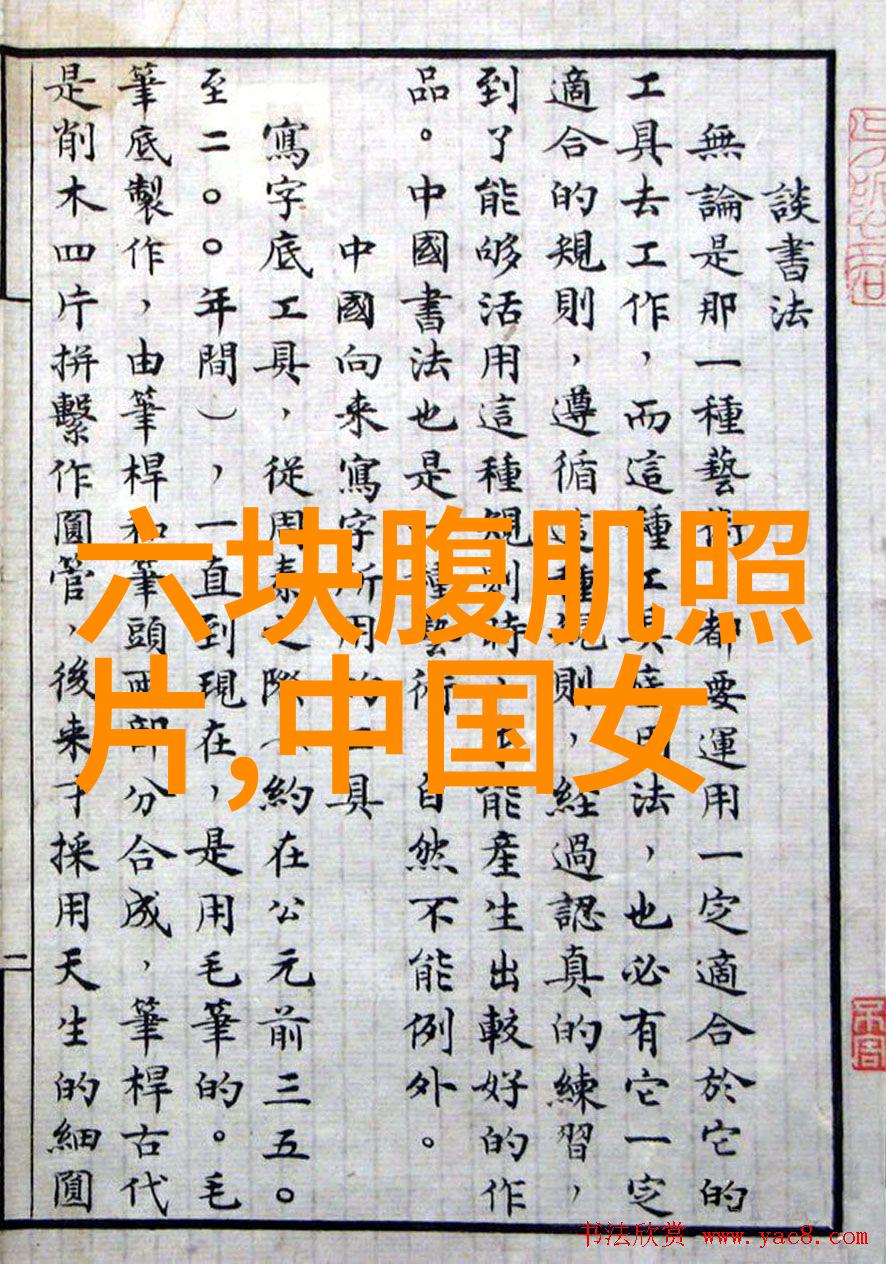 談書法
無論是那一種藝術 都要運用一定適合於它的
工具去工作，而這種工具底用法，也必有它一定
適合的規則，遵循這種規則，經過認真的練習，
到了能够活用這種規則時 才能產生出較好的作
品。中國書法也是一種藝術 自然不能例外。
中國向来寫字所用的工具
寫字底工具，從周秦之際（約在公元前三五〇
至二〇〇年間），一直到現在，是用毛筆的。毛
筆底製作，由筆桿和筆頭兩部分合成，筆桿古代
是削木四片拼繫作圓管，後来才採用天生的細圓
二
六块腹肌照
片,中国女
书法欣赏 www.yac8.com